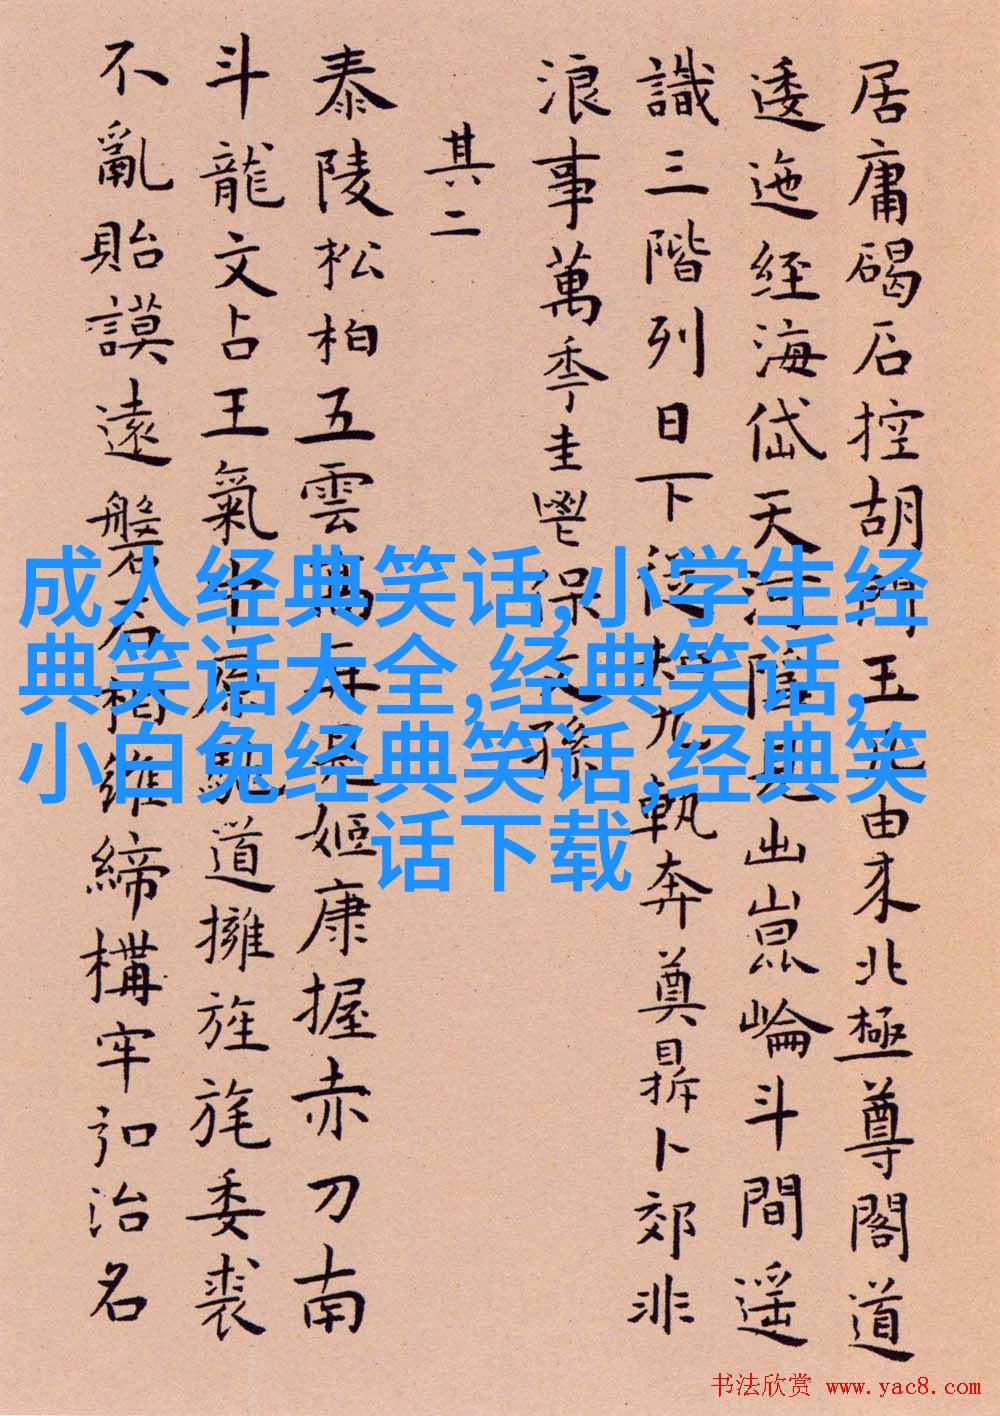 居庸碣石控胡韓王
由来北極尊閣道
逶迤經海岱天河隂見出崑崙斗間遥
識三階列日下從
九執奔奠鼎卜郊非
浪事萬季圭鬯保天孫
其二
泰陵松柏五雲萬
姬康握赤刀南
斗龍文占王氣中原
道擁旌旄委裘
不亂貽謨遠磐石相維締構牢訒治名
成人经典笑话,小学生经
典笑话大全,经典笑话,
小白兔经典笑话,经典笑
话下载
书法欣赏 www.yac8.com